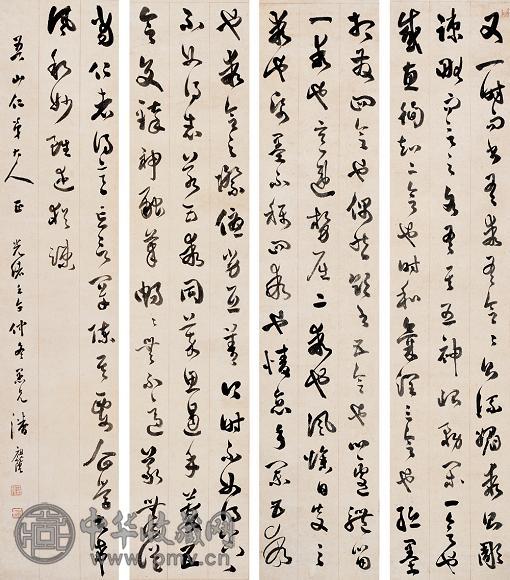 又一時而書有乖有合合則流媚乖則彫
疎略言其由各有其五神怡務閑一合也
感惠徇知二合也時和氣潤三合也紙墨
相發四合也偶然欲書五合也心遽體留
一乖也意違勢屈二乖也風燥日炎三
乖也紙墨不稱四乖也情怠手闌五乖
也乖合之際優劣互差得時不如得器得器
不如得志若五乖同萃思遏手蒙五
合交臻神融筆暢暢無不適蒙無所從
當仁者得意忘言罕陳其要企學者希
風敘妙雖述猶疎
山仁弟大人正 仲冬 潘
中华收藏网
www.pmcv.cn